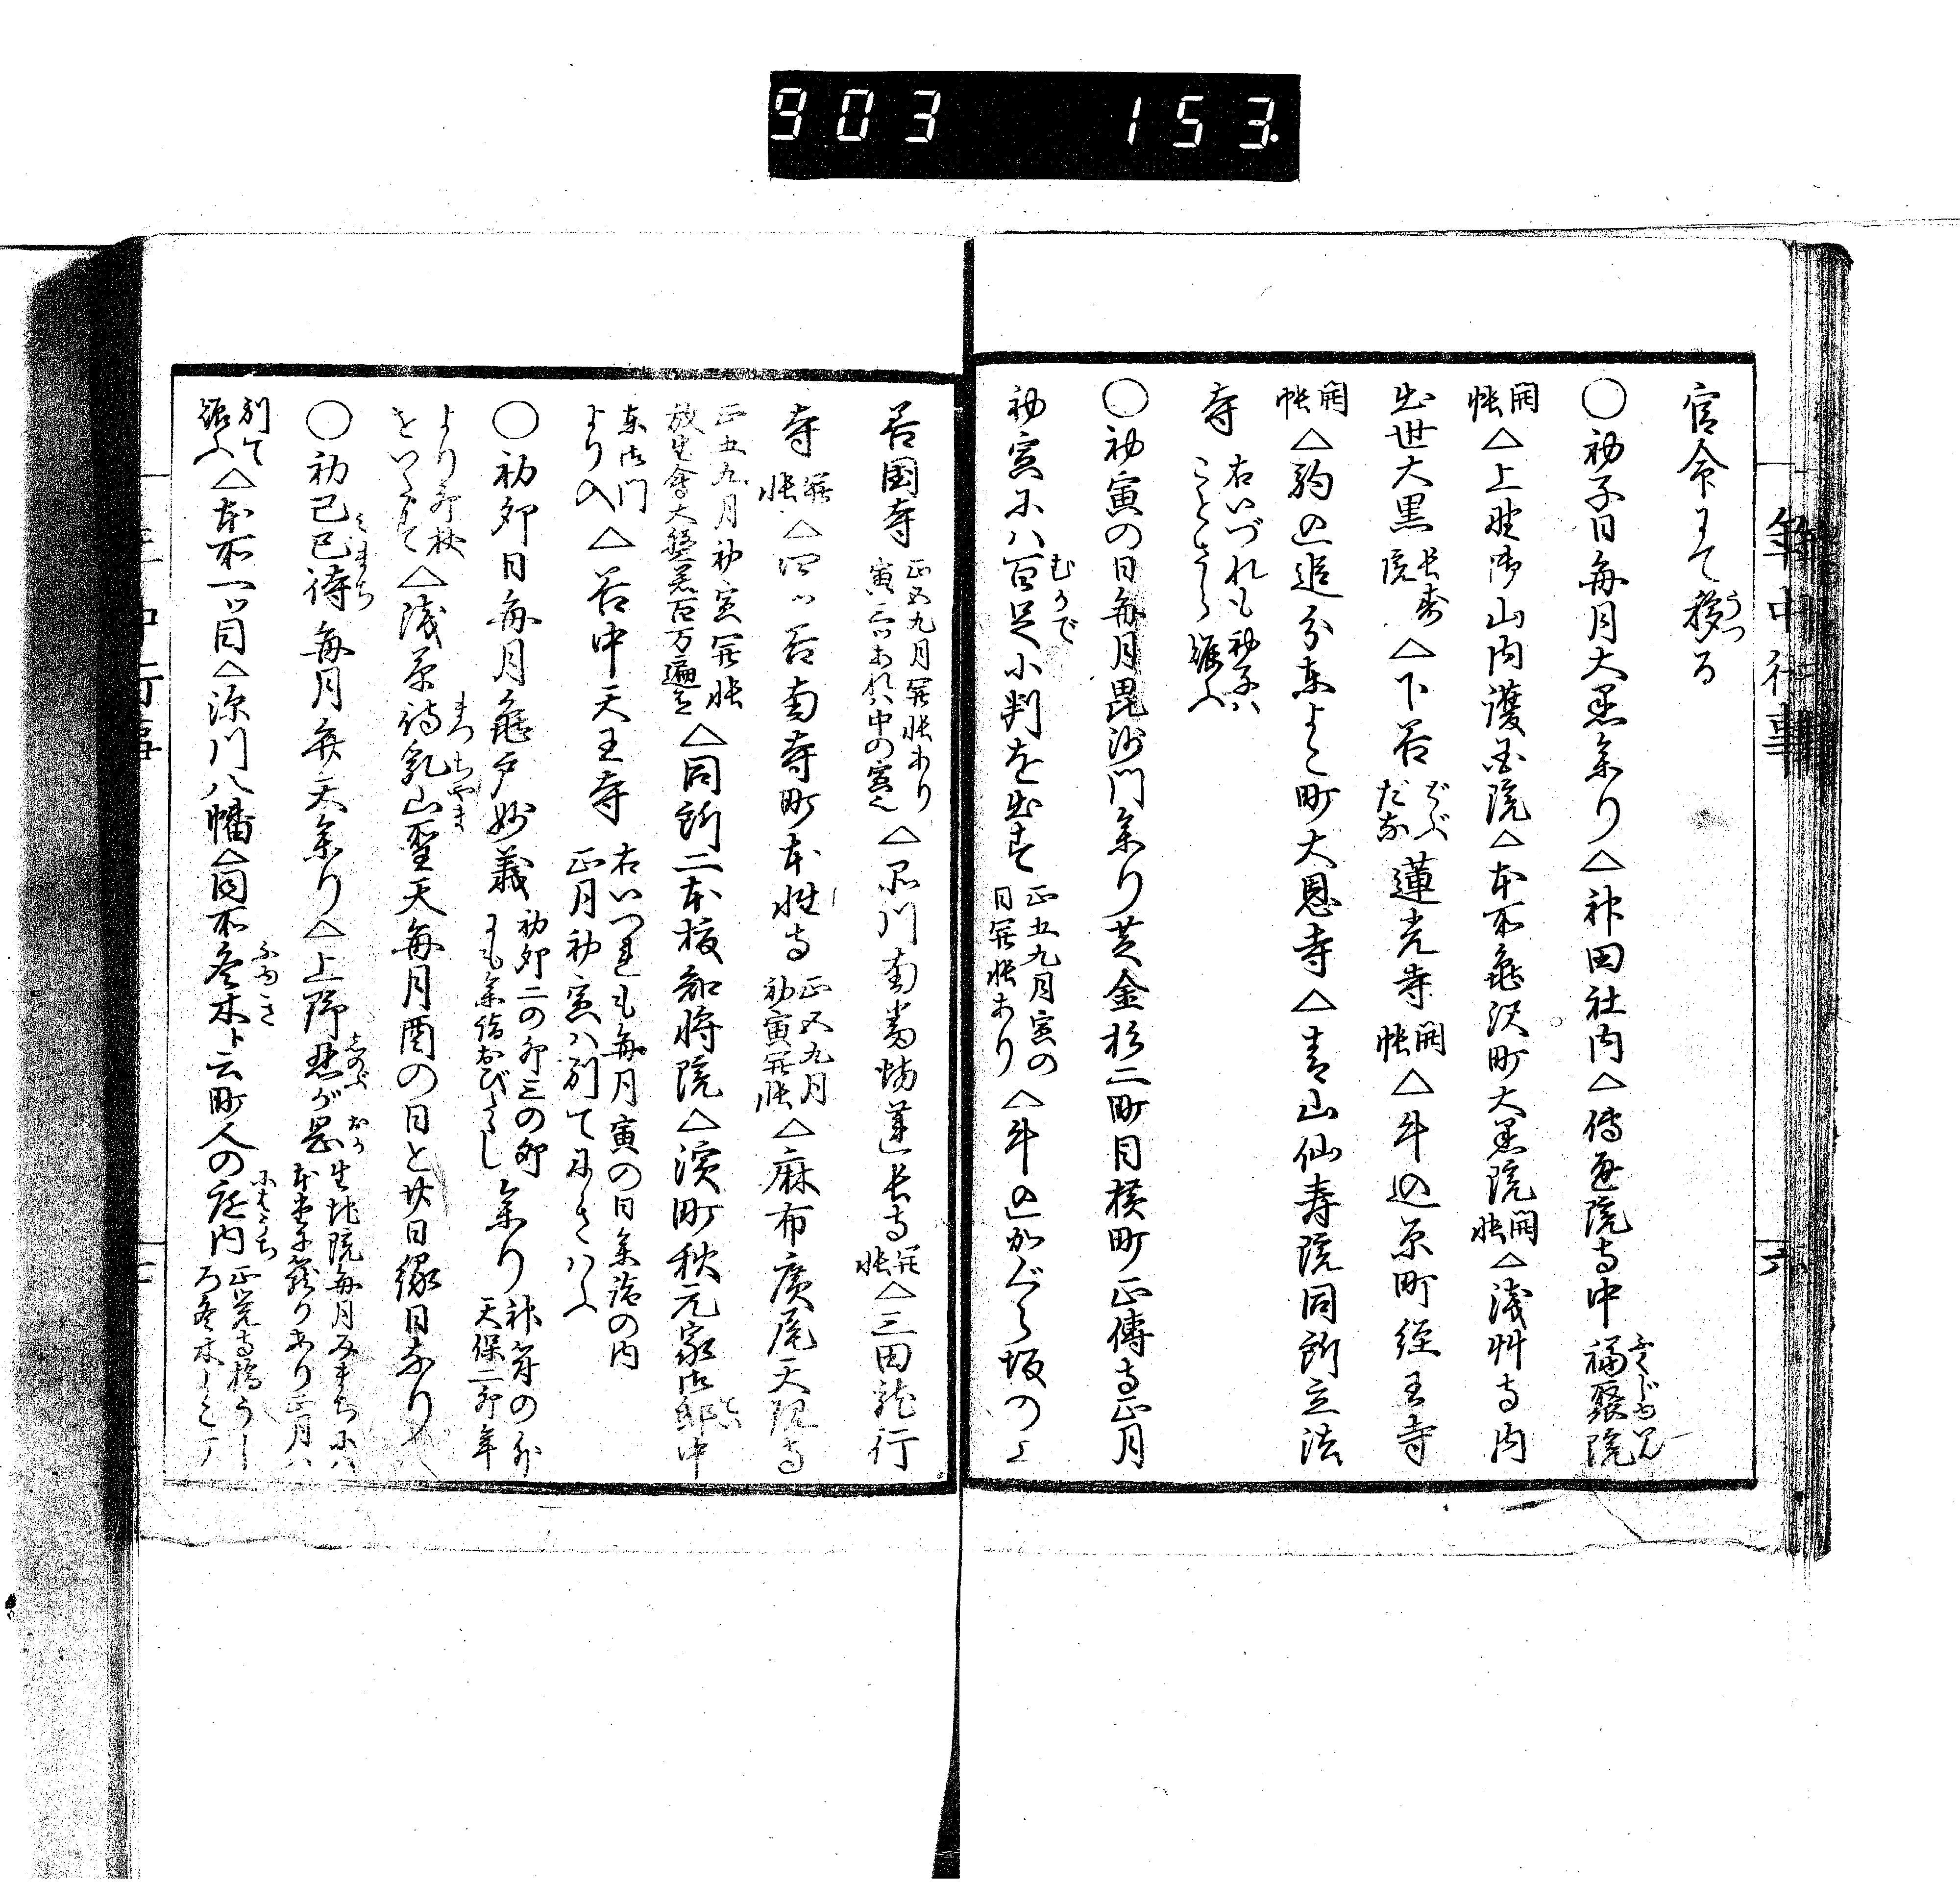 903 153
年中行事
六
官令にて移る
○初子日毎月大黒参り△神田社内△傳通院寺中福聚院
開帳△上野御山内護国院△本所亀沢町大黒院開帳△浅艸寺内
出世大黒長寿院△下谷蓮光寺開帳△牛込原町経王寺
開帳△駒込追分東よこ町大恩寺△青山仙寿院同所立法
寺右いづれも初子ハことさら賑ふ
○初寅の日毎月毘沙門参り芝金杉二町目横町正傳寺正月
初寅にハ百足小判を出す正五九月寅の日開帳あり△牛込かぐら坂の上
善国寺正五九月開帳あり寅三ツあれハ中の寅也△品川南番場蓮長寺開帳△三田龍行
寺開帳△四ツ谷南寺町本性寺正五九月初寅開帳△麻布広尾天現寺
正五九月初寅開帳放生會大般若百万遍等△同所二本榎知将院△濱町秋元家御邸中
東御門より入△谷中天王寺右いつれも毎月寅の日参詣の内正月初寅ハ別てにきハふ
○初夘日毎月亀戸妙義初夘二の夘三の夘にも参詣おびたゝし参り神符の外天保二卯年
より卯杖をいだす△浅草待乳山聖天毎月酉の日と廿日縁日なり
○初己巳待毎月弁天参り△上野忍が岡生池院毎月みまちにハ本坊に籠りあり正月ハ
別て賑ふ△本所一ツ目△深川八幡△同所冬木ト云町人の庭内